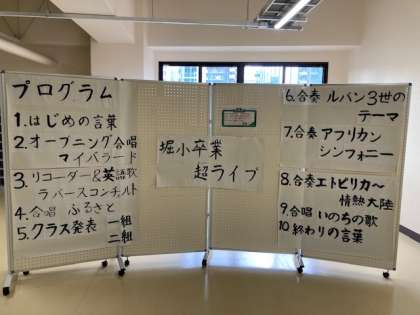 プログラム
1.はじめの言葉
2.オープニング合唱
マイバラード
3.リコーダー&英語歌
ラバースコンチェルト
4.合唱 ふるさと
5.クラス発表 一組
二組
堀小卒業
超ライブ
6.合奏 ルパン3世の
テーマ
7.合奏 アフリカン
シンフォニー
8.合奏エトピリカ〜
情熱大陸
9.合唱 いのちの歌
10.終わりの言葉